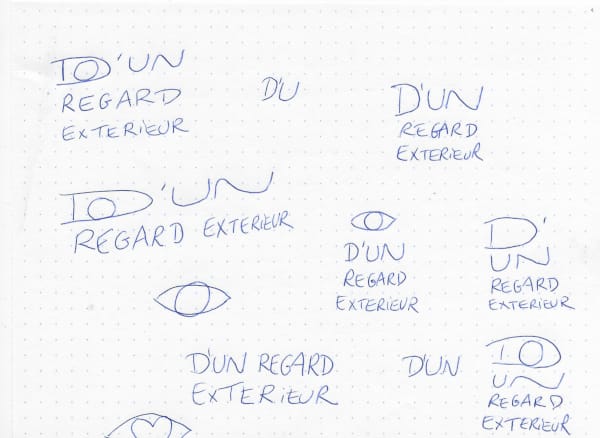 D'UN
REGARD
EXTERIEUR
D'U
D'UN
REGARD
EXTERIEUR
D'UN
REGARD EXTERIEUR
D'UN
REGARD
EXTERIEUR
D'
UN
REGARD
EXTERIEUR
D'UN REGARD
EXTERIEUR
D'UN
D
UN
REGARD
EXTERIEUR